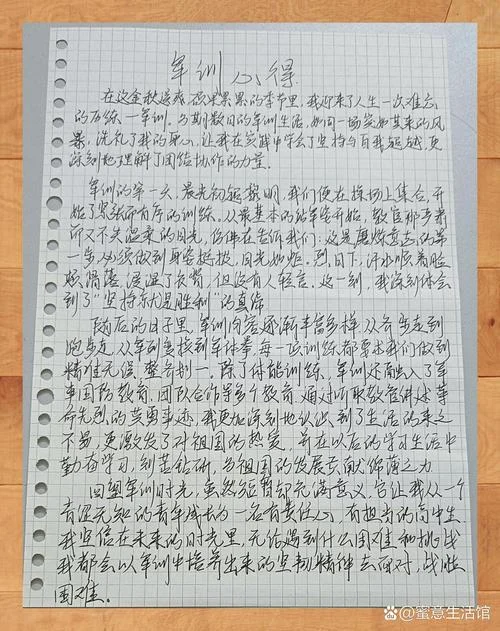 军训心得
在这金秋送爽、硕果累累的季节里,我迎来了人生一次难忘
的历练—军训。为期数日的军训生活,如同一场突如其来的风
暴,洗礼了我的身心,让我在实践中学会了坚持与自我超越,更
深刻地理解了团结协作的力量。
军训的第一天,晨光初绽黎明,我们便在操场上集合,开
始了紧张而有序的训练。从最基本的站军姿开始,教官那严肃
而又不失温柔的目光,仿佛在告诉我们:这是磨炼意志的第
一步,必须做到身姿挺拔,目光如炬。烈日下,汗水顺着脸
颊滑落,浸湿了衣背,但没有人轻言。这一刻,我深刻体会
到了“坚持就是胜利”的真谛
随后的日子里,军训内容逐渐丰富多样,从齐步走到
跑步走,从军列变换到军体拳,每一项训练都要求我们做到
精准无误,整齐划一。除了体能训练,军训还融入了军
事国防教育、团队合作等多个教育,通过听取教官讲述革
命先烈的英勇事迹,我更加深刻地认识到了生活的来之
不易,更激发了对祖国的热爱,并在以后的学习生活中
勤奋学习,刻苦钻研,为祖国的发展贡献绵薄之力
回望军训时光,虽然短暂却充满意义,它让我从一个
青涩无知的青年成长为一名有责任心,有担当的高中生。
我坚信在未来的时光里,无论遇到什么困难和挑战
我都会以军训中培养出来的坚韧精神去面对,战胜
困难。
@蜜意生活馆